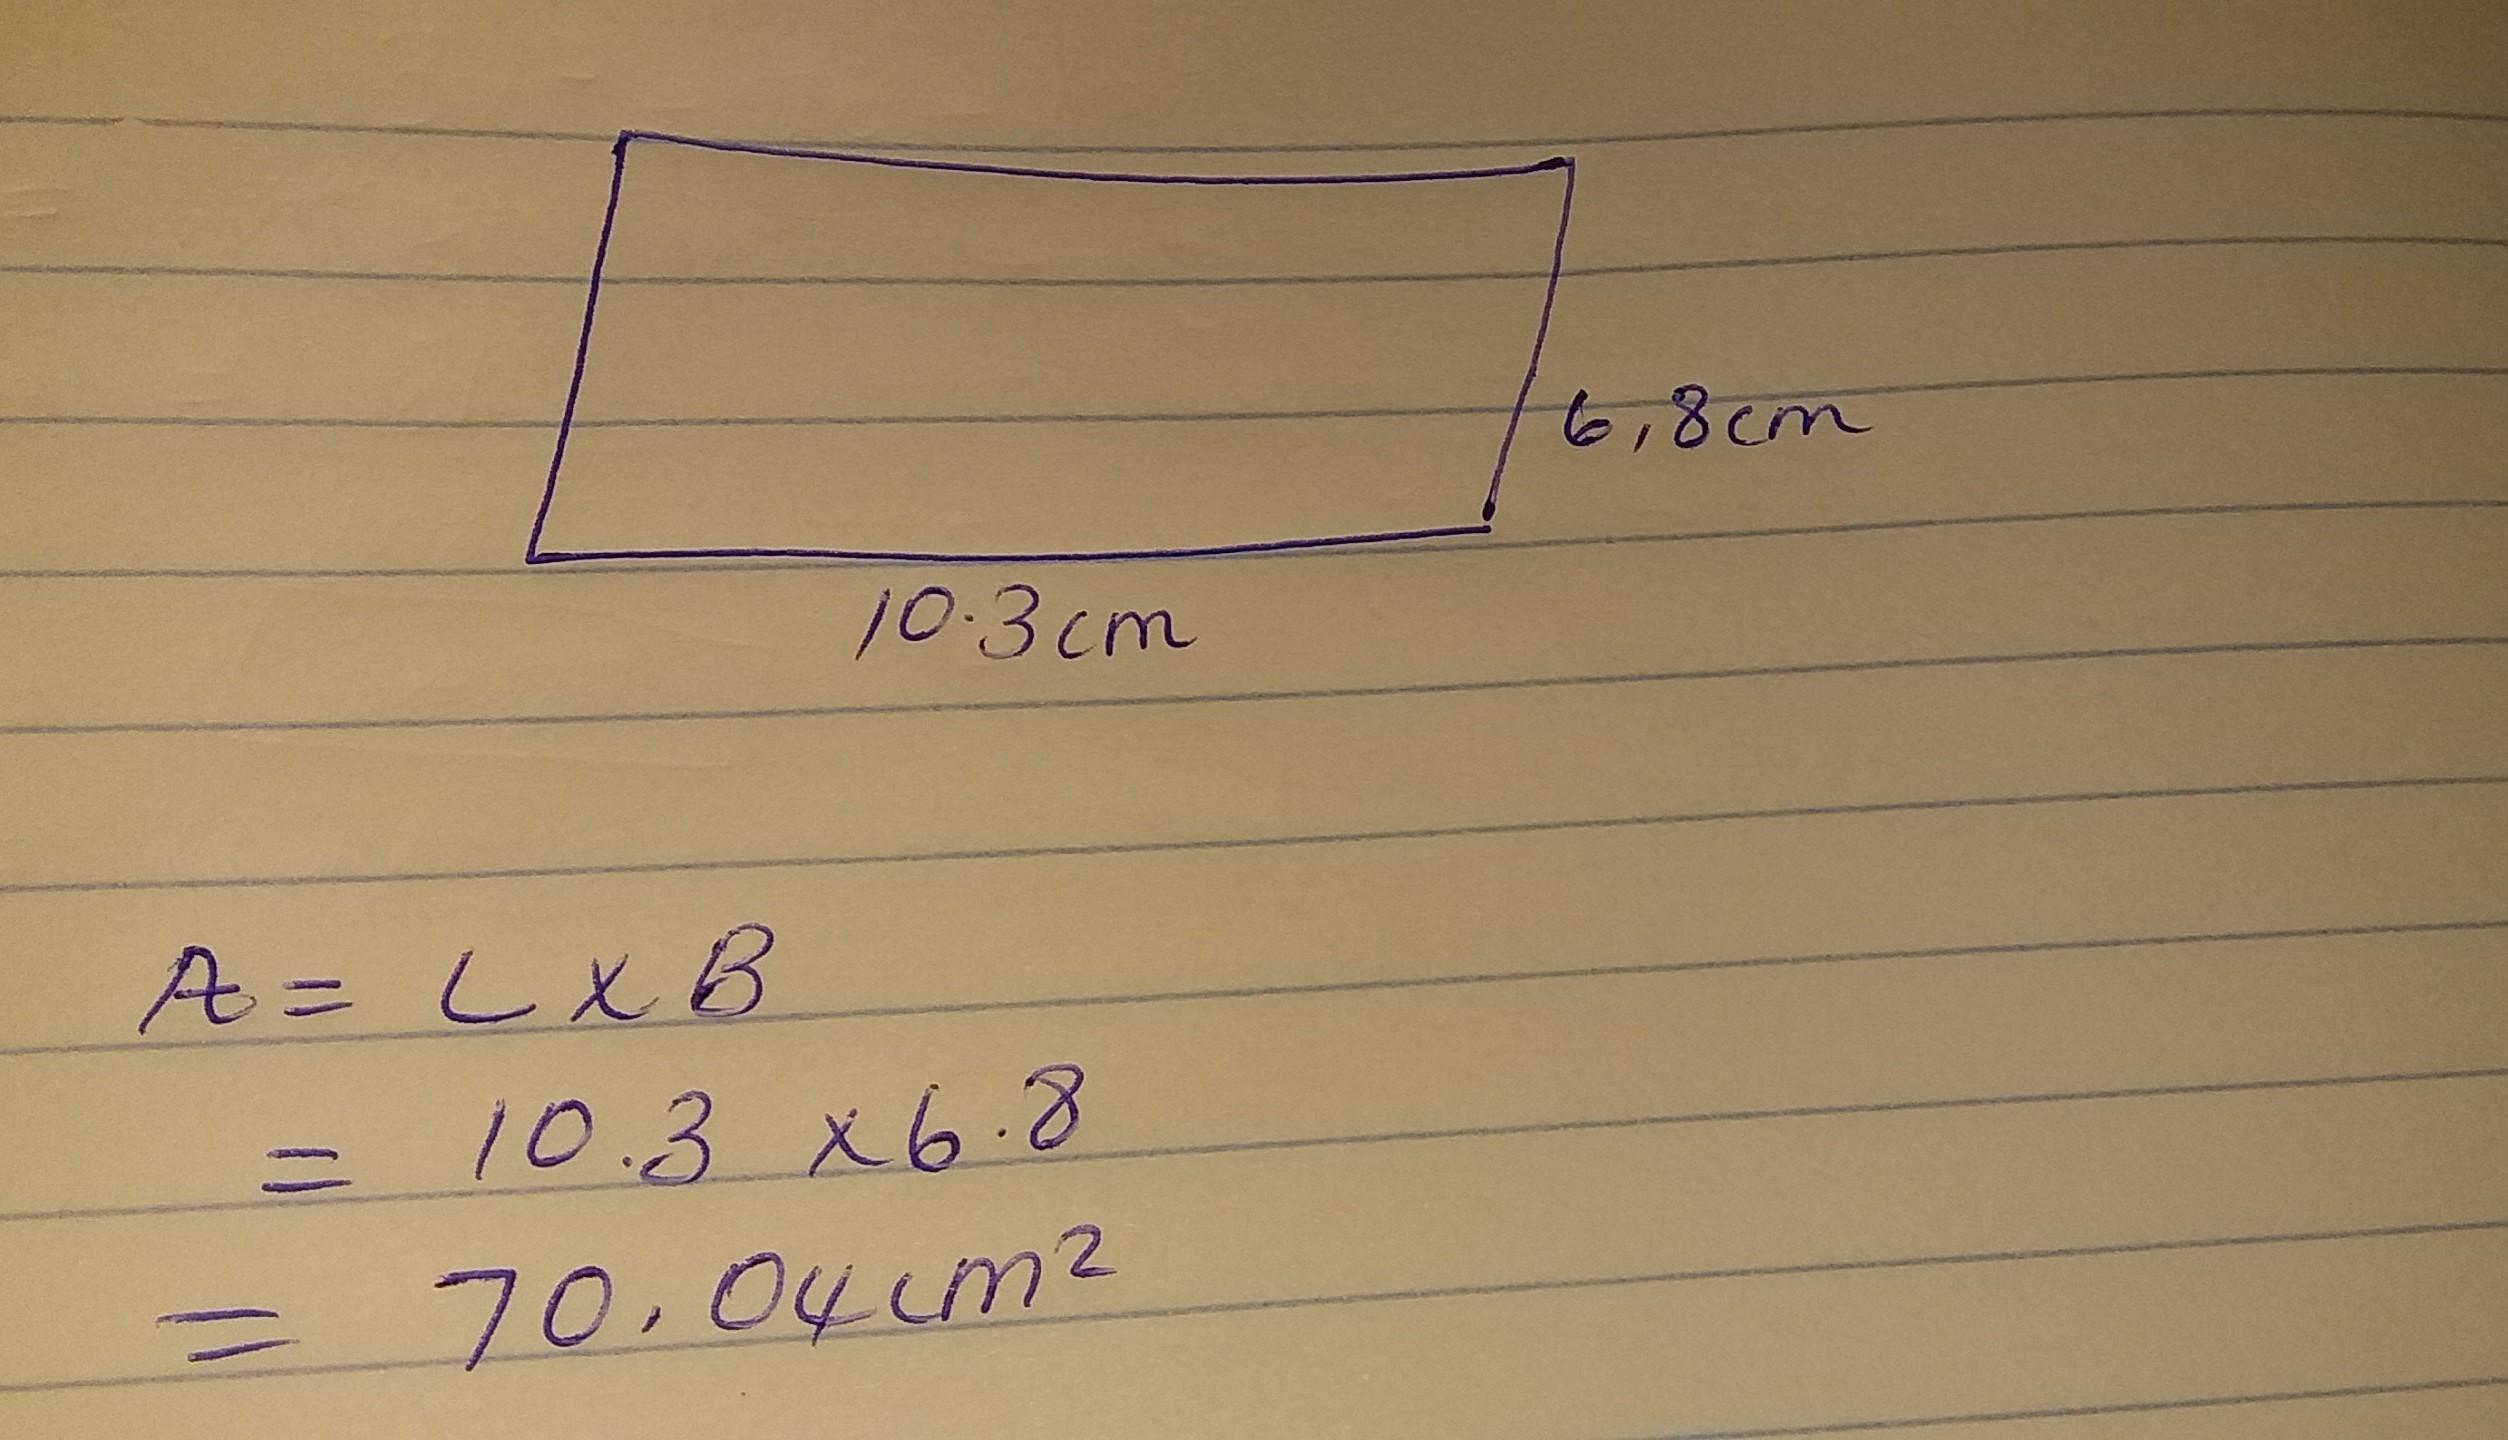 6,8cm
10.3cm
A = L x B
= 10.3 x 6.8
= 70.04cm²